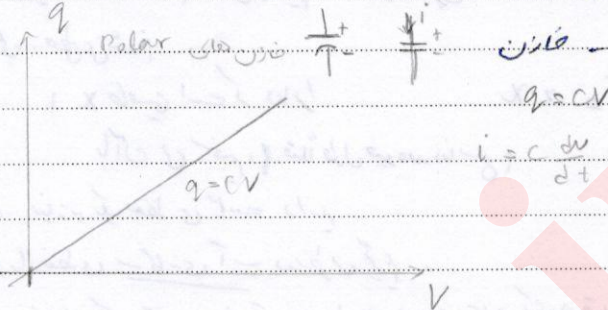 q
ـ خازن
i + -
+ -
خازن های Polar
q = CV
i = C dv/dt
q = CV
V